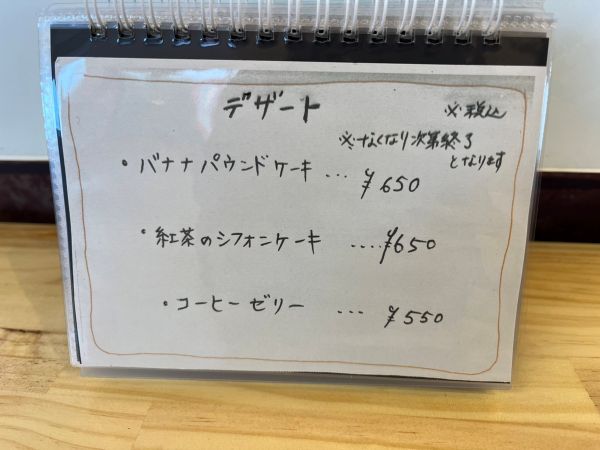 デザート
※税込
※なくなり次第終了
となります
・バナナパウンドケーキ... ¥650
・紅茶のシフォンケーキ ....¥650
・コーヒーゼリー ... ¥550